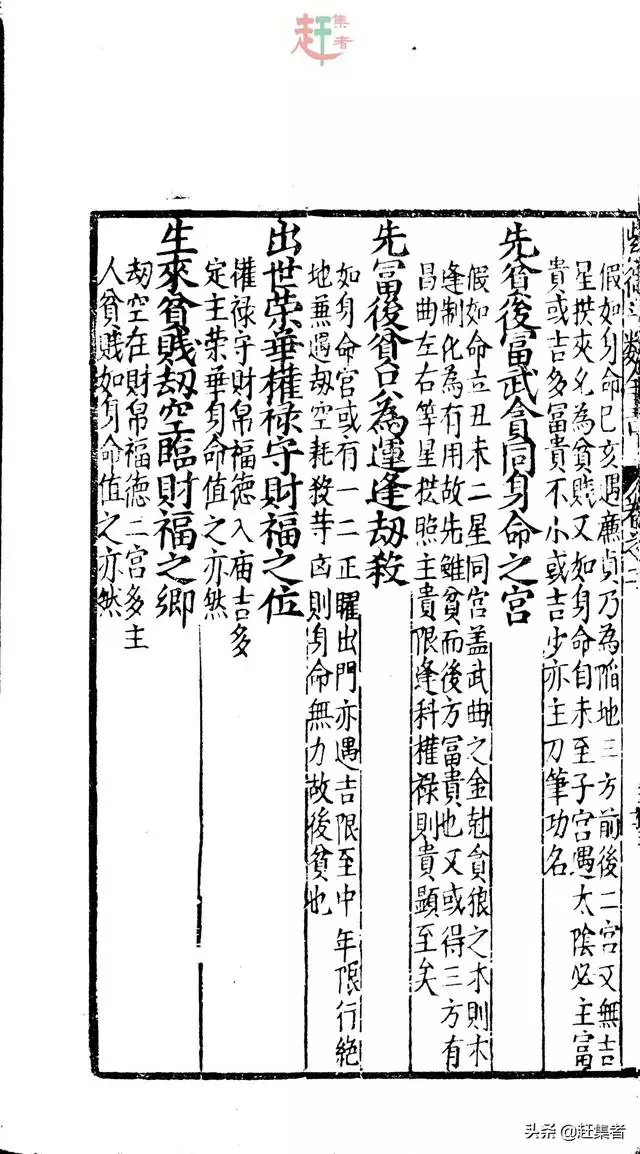 赶集者
假如身命巳亥遇廉貞乃為陷地三方前後二宮又無吉
星拱夾必為貧賤又如身命自未至子宮遇太陰必主富
貴或吉多富貴不小或吉少亦主刀筆功名
先貧後富武貪同身命之宮
假如命立丑未二星同宮盖武曲之金尅貪狼之木則木
逢制化為有用故先雖貧而後方富貴也又或得三方有
昌曲左右等星拱照主貴限逢科權禄則貴顯至矣
先富後貧只為運逢劫殺
如身命宮或有一二正曜出門亦遇吉限至中年限行絕
地兼遇劫空耗殺等凶則身命無力故後貧也
出世荣華權禄守財福之位
權禄守財帛福德入庙吉多
定主荣華身命值之亦然
生來貧賤劫空臨財福之鄉
劫空在財帛福德二宮多主
人貧賤如身命值之亦然
头条 @赶集者